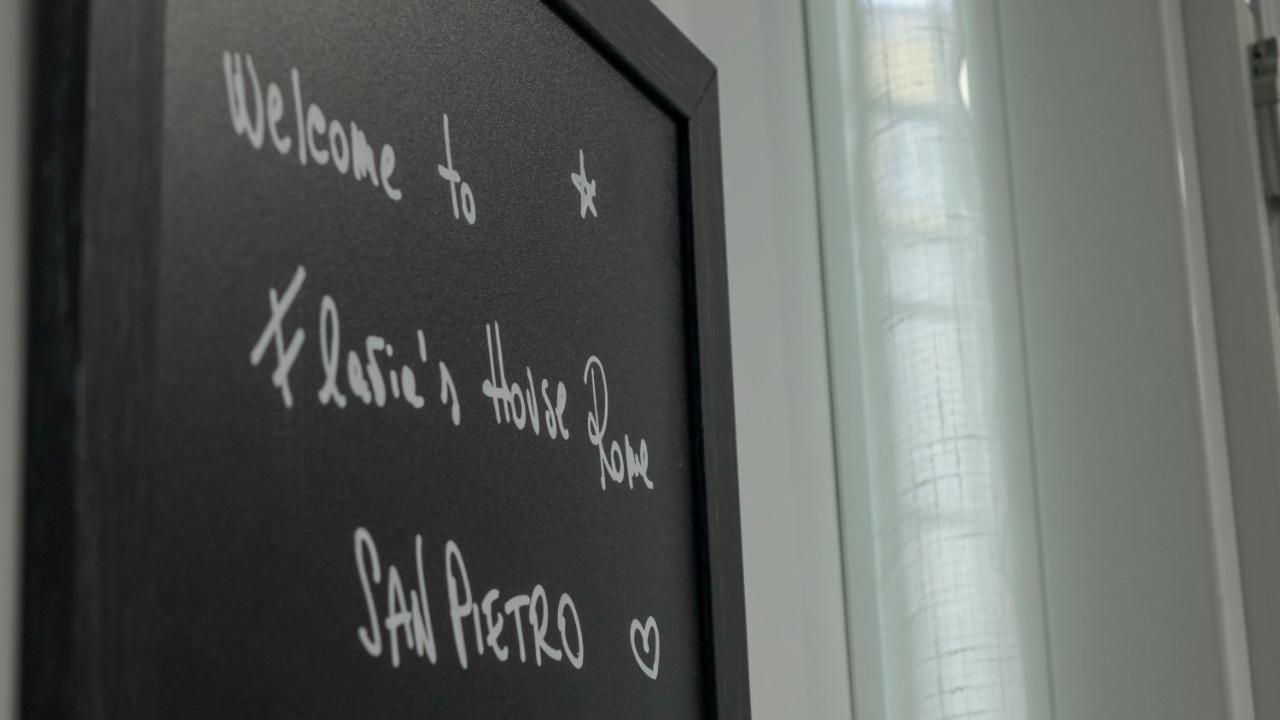 Welcome to
Flavia's House Rome
SAN PIETRO